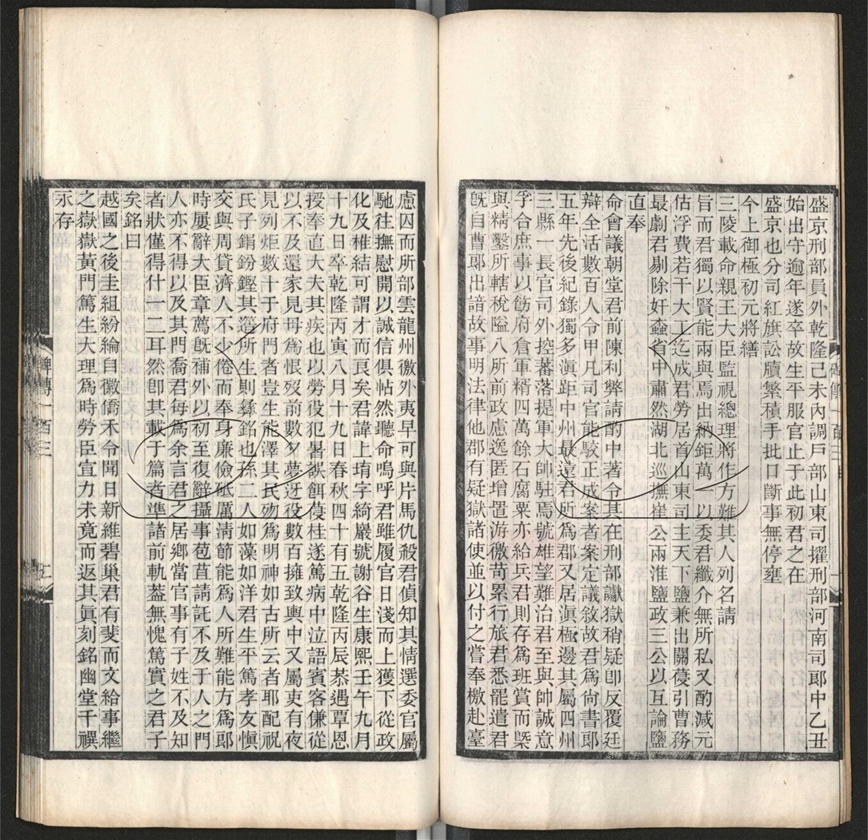 盛京刑部員外乾隆己未內調戶部山東司擢刑部河南司郎中乙丑
始出守逾年遂卒故生平服官止于此初君之在
盛京也分司紅旗訟牘繁積手批口斷事無停壅
今上御極初元將繕
三陵載命親王大臣監視總理將作方難其人列名請
旨而君獨以賢能兩與焉出納鉅萬一以委君纖介無所私又酌減元
估浮費若干大工迄成君勞居首山東司主天下鹽兼出關葠引曹務
最劇君剔除奸蠹省中肅然湖北巡撫崔公兩淮鹽政三公以互論鹽
直奉
命會議朝堂君前陳利弊請酌中著令其在刑部讞獄稍疑卽反覆廷
辯全活數百人令甲凡司官能駮正成案者案定議敘故君爲尙書郎
五年先後紀錄獨多滇距中州最遠君所爲郡又居滇極邊其屬四州
三縣一長官司外控蕃落提軍大帥駐焉號雄望難治君至與帥誠意
孚合庶事以飭府倉軍糈四萬餘石腐粟亦給兵君則存爲班賞而槩
與精鑿所轄稅隘八所前政慮逸匿增置游徼苛累行旅君悉罷遣君
旣自曹郎出諳故事明法律他郡有疑獄諸使並以付之嘗奉檄赴臺
慮囚而所部雲龍州徼外夷早可與片馬仇殺君偵知其情選委官屬
馳往撫慰開以誠信俱帖然聽命嗚呼君雖履官日淺而上獲下從政
化及椎結可謂才而良矣君諱上堉字綺巖號謝谷生康熙壬午九月
十九日卒乾隆丙寅八月十九日春秋四十有五乾隆丙辰恭遇覃恩
授奉直大夫其疾也以勞役犯暑誤餌葠桂遂篤病中泣語賓客傔從
以不及還家見母爲恨歿前數夕夢迓役數百擁致輿中又屬吏有夜
見列炬數十于府門者豈生能澤其民歿爲明神如古所云者耶配祝
氏子鍋鈖鏗其簉所生則鎵銘也孫二人如藻如洋君生平篤孝友愼
交與周貸濟人不少倦而奉身廉儉砥厲淸節能爲人所難能方爲郎
時屢辭大臣章薦旣補外以初至復辭攝事苞苴請託不及于人之門
人亦不得以及其門喬君每爲余言君之居鄉當官事有子姓不及知
者狀僅得什一二耳然卽其載于篇者準諸前軌蓋無愧篤實之君子
矣銘曰
越國之後圭組紛綸自徽僑禾令聞日新維碧巢君有斐而文給事繼
之嶽嶽黃門篤生大理爲時勞臣宣力未竟而返其眞刻銘幽堂千禩
示存
碑傳一百三